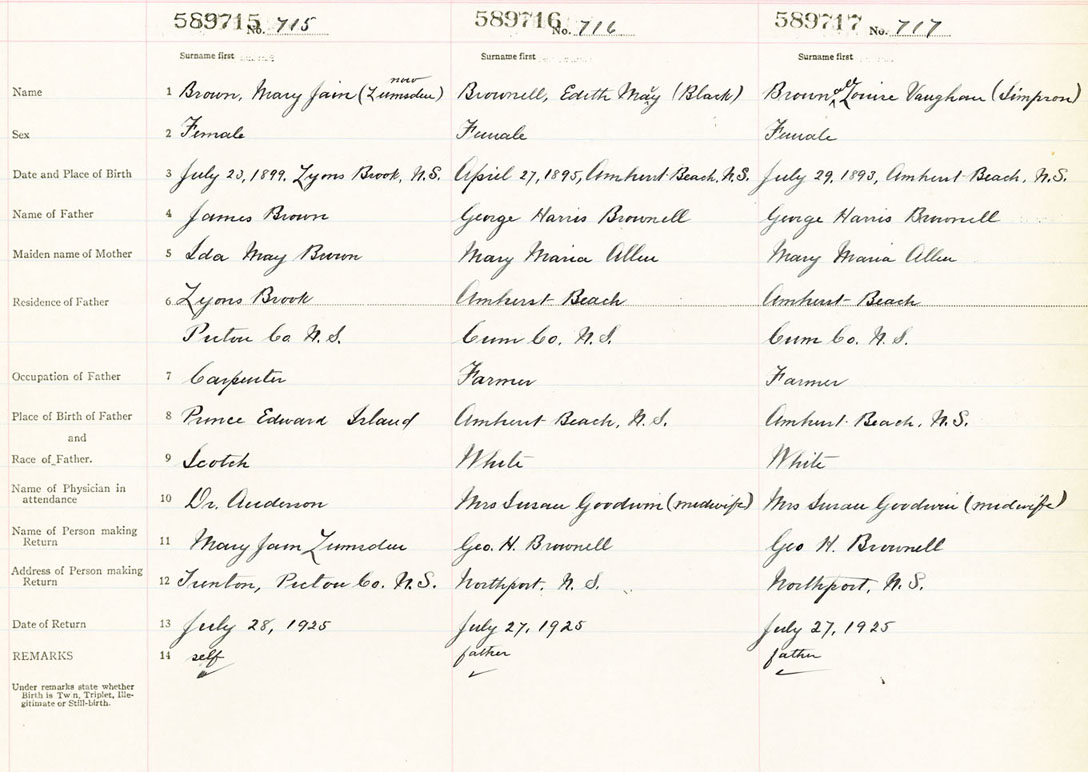 589715 No. 715 589716 No. 716 589717 No. 717
Surname first Surname first Surname first
Name 1 Brown, Mary Jain (now Lumsden) Brownell, Edith May (Black) Brownell, Louise Vaughan (Simpson)
Sex 2 Female Female Female
Date and Place of Birth 3 July 23, 1899, Lyons Brook, N.S. April 27, 1895, Amherst Beach, N.S. July 29, 1893, Amherst Beach, N.S.
Name of Father 4 James Brown George Harris Brownell George Harris Brownell
Maiden name of Mother 5 Ida May Brown Mary Maria Allen Mary Maria Allen
Residence of Father 6 Lyons Brook Amherst Beach Amherst Beach
Pictou Co. N.S. Cum Co. N.S. Cum Co. N.S.
Occupation of Father 7 Carpenter Farmer Farmer
Place of Birth of Father 8 Prince Edward Island Amherst Beach, N.S. Amherst Beach, N.S.
and
Race of Father. 9 Scotch White White
Name of Physician in
attendance 10 Dr. Anderson Mrs Susan Goodwin (midwife) Mrs Susan Goodwin (midwife)
Name of Person making
Return 11 Mary Jain Lumsden Geo. H. Brownell Geo H. Brownell
Address of Person making
Return 12 Trenton, Pictou Co. N.S. Northport, N.S. Northport, N.S.
Date of Return 13 July 28, 1925 July 27, 1925 July 27, 1925
REMARKS 14 self father father
Under remarks state whether
Birth is Twn, Triplet, Ille-
gitimate or Still-birth.